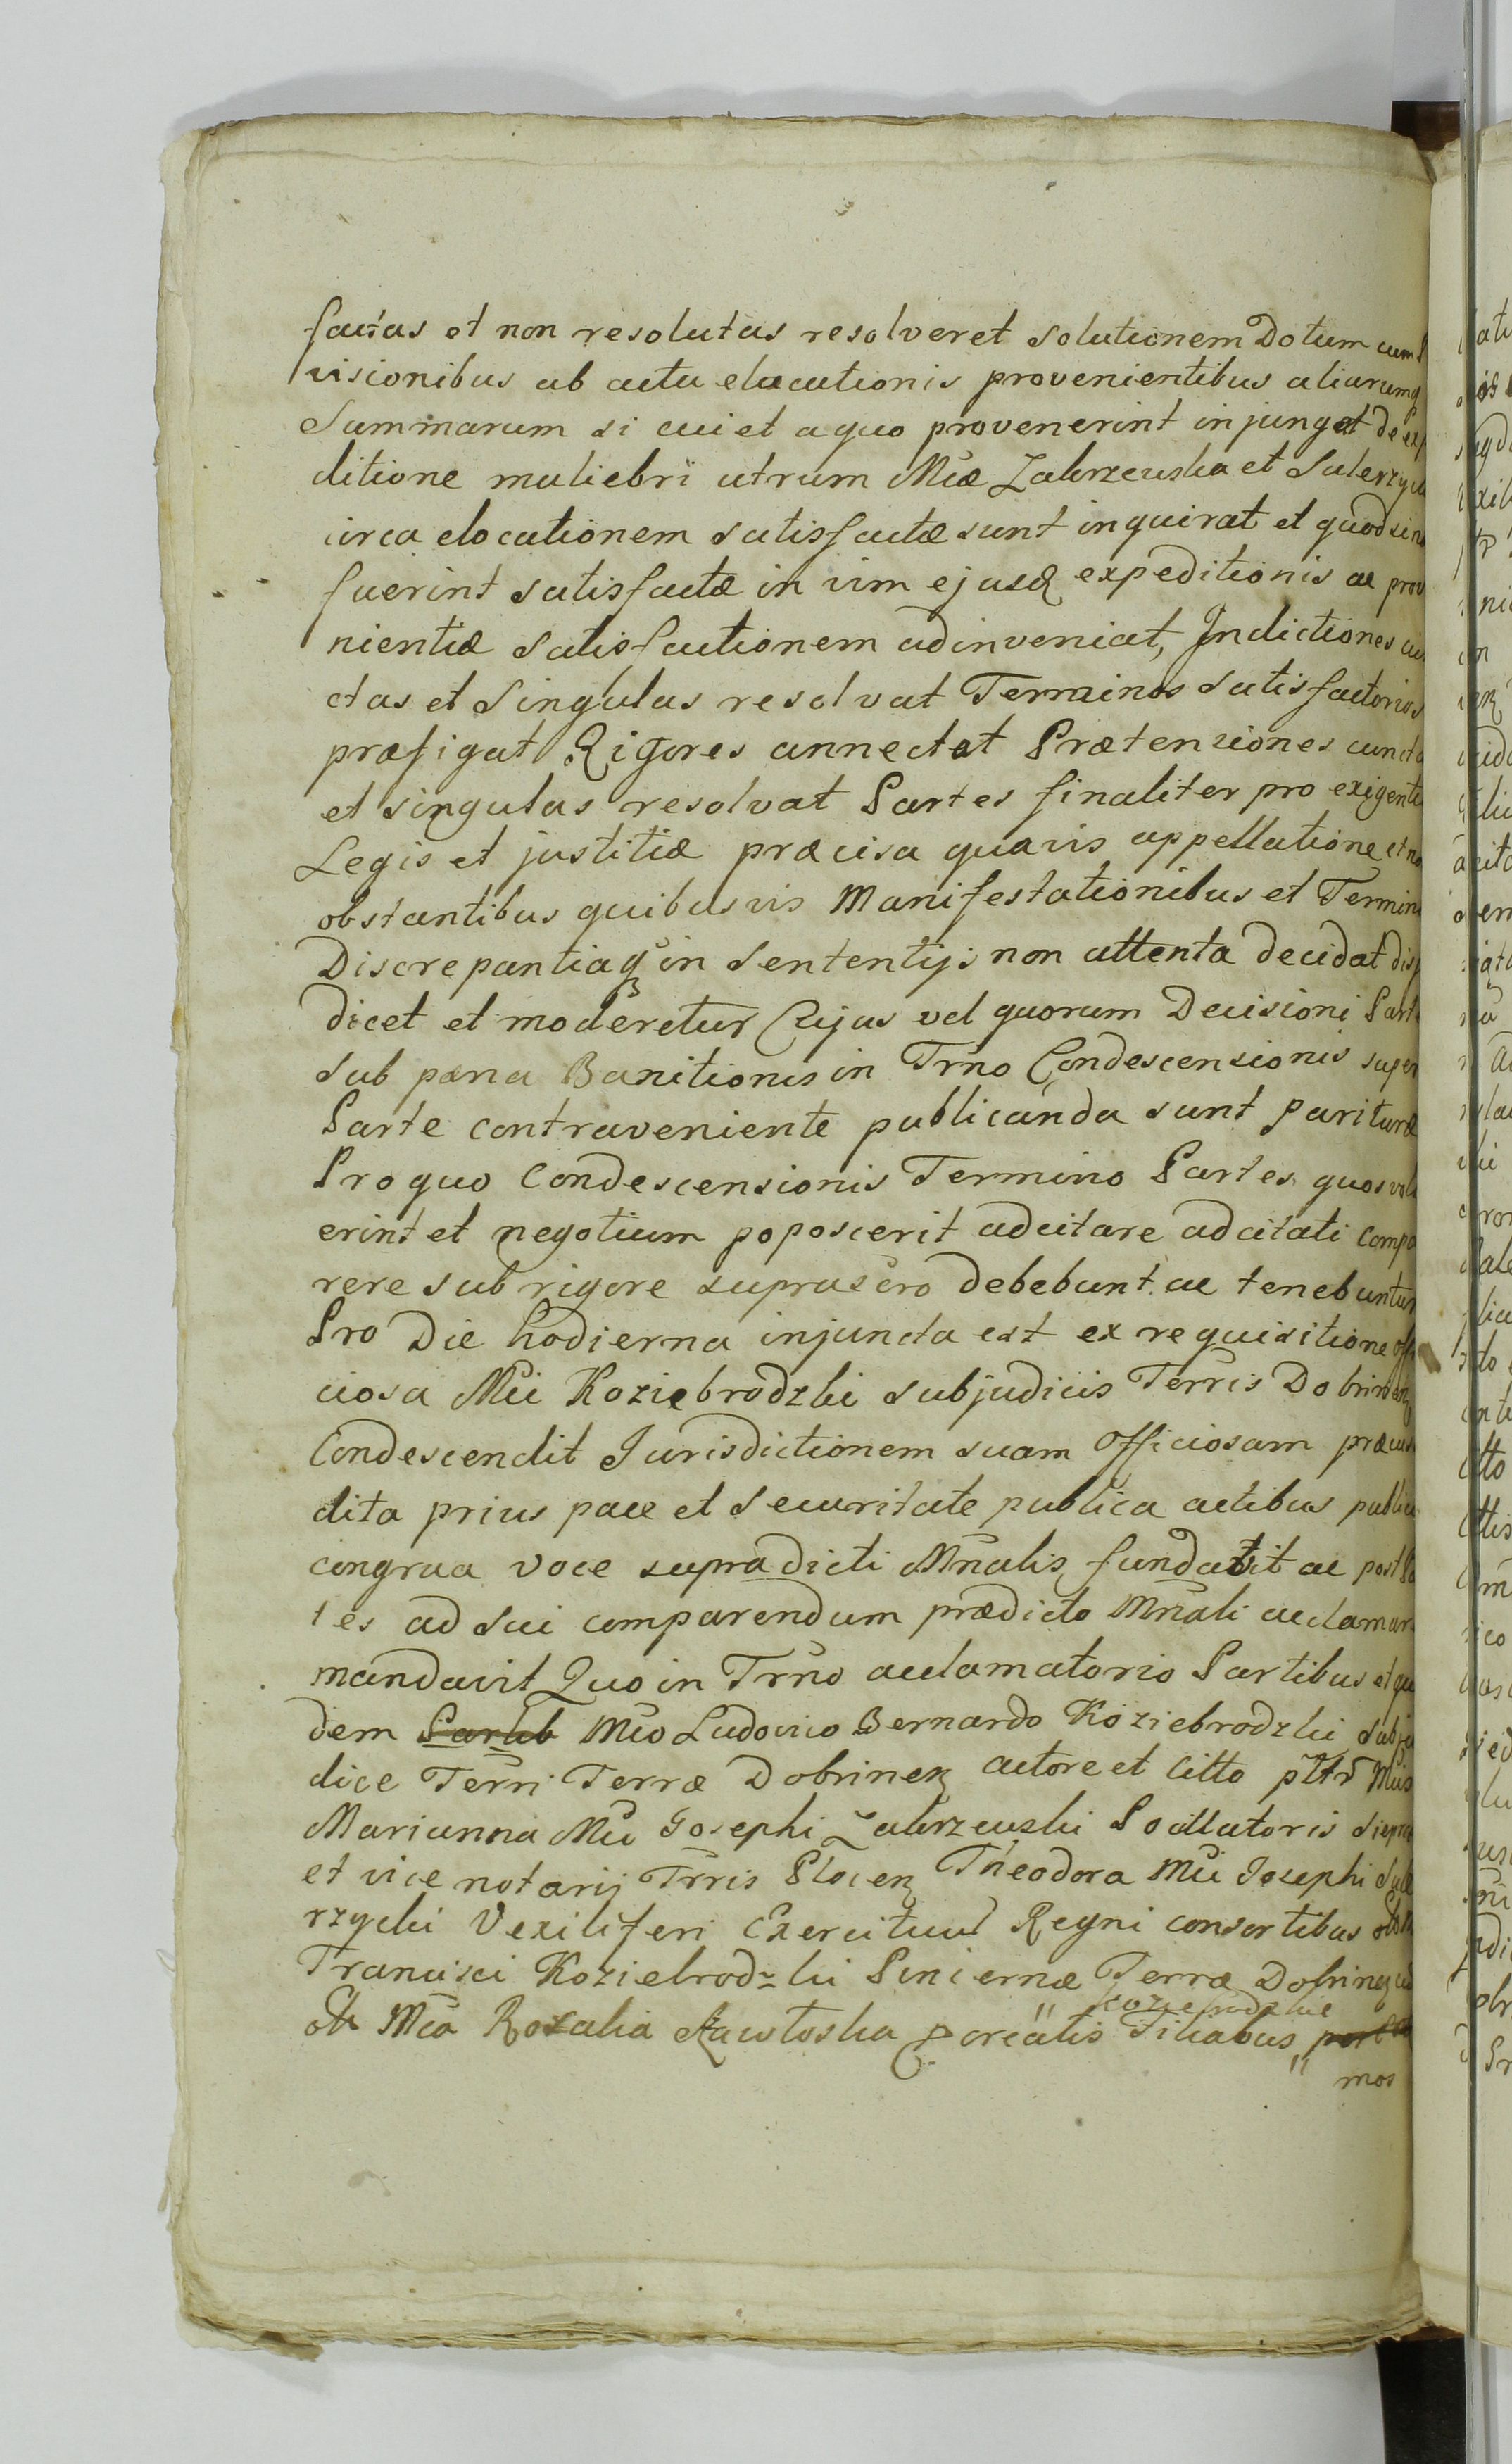 factas et non resolutas resolveret Solutionem Dotum cum
visionibus ab actu elocationis provenientibus aliarumq
Summarum si cui et a quo provenerint injunget De exp
ditione muliebri utrum Mcæ Zakrzewska et Sulerzycka
circa elocationem satisfactæ sunt inquirat et quod si no
fuerint satisfactæ in vim ejusd expeditionis ac prov
nientiæ Satisfactionem adinveniat, Indictiones cun
ctas et Singulas resolvat Terminos satisfactorios
præfigat Rigores annectat Prætensiones cuncta
et singulas resolvat Partes finaliter pro exigente
Legis et justitiæ præcisa quavis appellatione et no
obstantibus quibusvis Manifestationibus et Termin
Discrepantiaq in Sententijs non attenta Decidat diju
dicet et moderetur Cujus vel quorum Decisioni Part
Sub pæna Banitionis in Trno Condescensionis super
Parte contraveniente publicanda sunt parituræ
Pro quo Condescensionis Termino Partes quos volu
erint et negotium poposcerit adcitare adcitati compa
rere sub rigore suprascro Debebunt ac tenebuntur
Pro Die hodierna injuncta est ex requisitione offi
ciosa Mci Koziebrodzki Subjudicis Terris Dobrinen
Condescendit Jurisdictionem suam Officiosam præcus
dita prius pace et Securitate publica actibus public
congrua voce supradicti Mnalis fundavit ac post Pa
tes ad Sui comparendum prædicto Mnali acclamar
mandavit Quo in Trno acclamatorio Partibus et qui
dem Mco Ludovico Bernardo Koziebrodzki Subju
dice Terri Terræ Dobrinen actore et Citto Mcis
Marianna Mci Josephi Zakrzewski Pocillatoris Sierpce
et vice notarij Trris Plocen Theodora Mci Josephi Sule
rzycki Vexiliferi Exercituum Regni consortibus
Francisci Koziebrodzki Pincernæ Terræ Dobrinen
Koziebrodzkie
Mca Rozalia filiabus
mos